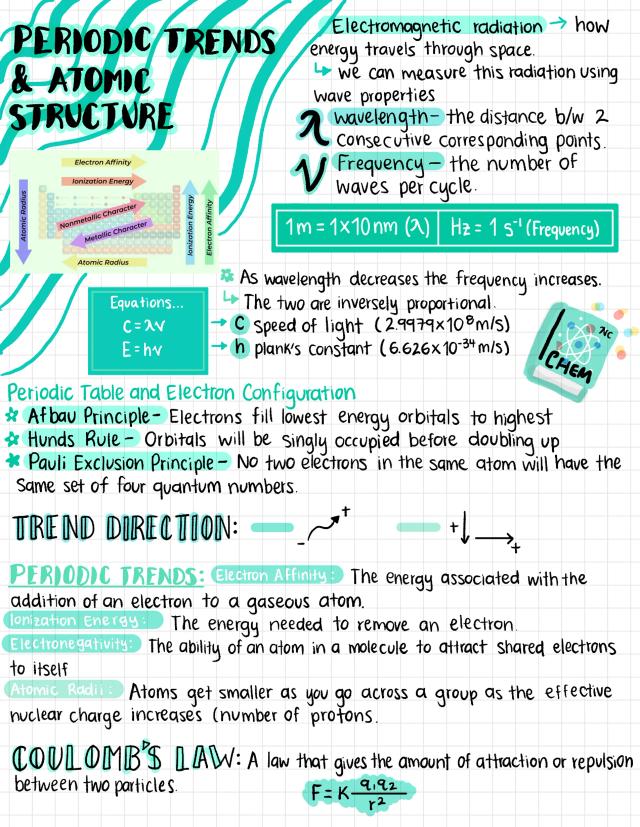 PERIODIC TRENDS
& ATOMIC
STRUCTURE
Electron Affinity
Ionization Energy
Atomic Radius
Nonmetallic Character
Metallic Character
Ionization Energy
Electron Affinity
Atomic Radius
Electromagnetic radiation → how
energy travels through space.
↳ we can measure this radiation using
wave properties
λ wavelength- the distance b/w 2
consecutive corresponding points.
ν Frequency - the number of
waves per cycle.
1m = 1x10 nm (λ) | Hz = 1 s⁻¹ (Frequency)
* As wavelength decreases the frequency increases.
↳ The two are inversely proportional.
Equations...
C = λν
E = hν
→ C speed of light (2.9979x10⁸ m/s)
→ h plank's constant (6.626x10⁻³⁴ m/s)
CHEM
Periodic Table and Electron Configuration
* Afbau Principle- Electrons fill lowest energy orbitals to highest
* Hunds Rule- Orbitals will be singly occupied before doubling up
* Pauli Exclusion Principle- No two electrons in the same atom will have the
same set of four quantum numbers.
TREND DIRECTION: - + + +
PERIODIC TRENDS: Electron Affinity: The energy associated with the
addition of an electron to a gaseous atom.
Ionization Energy: The energy needed to remove an electron.
Electronegativity: The ability of an atom in a molecule to attract shared electrons
to itself
Atomic Radii: Atoms get smaller as you go across a group as the effective
nuclear charge increases (number of protons.
COULOMB'S LAW: A law that gives the amount of attraction or repulsion
between two particles.
F = K q₁q₂ / r²